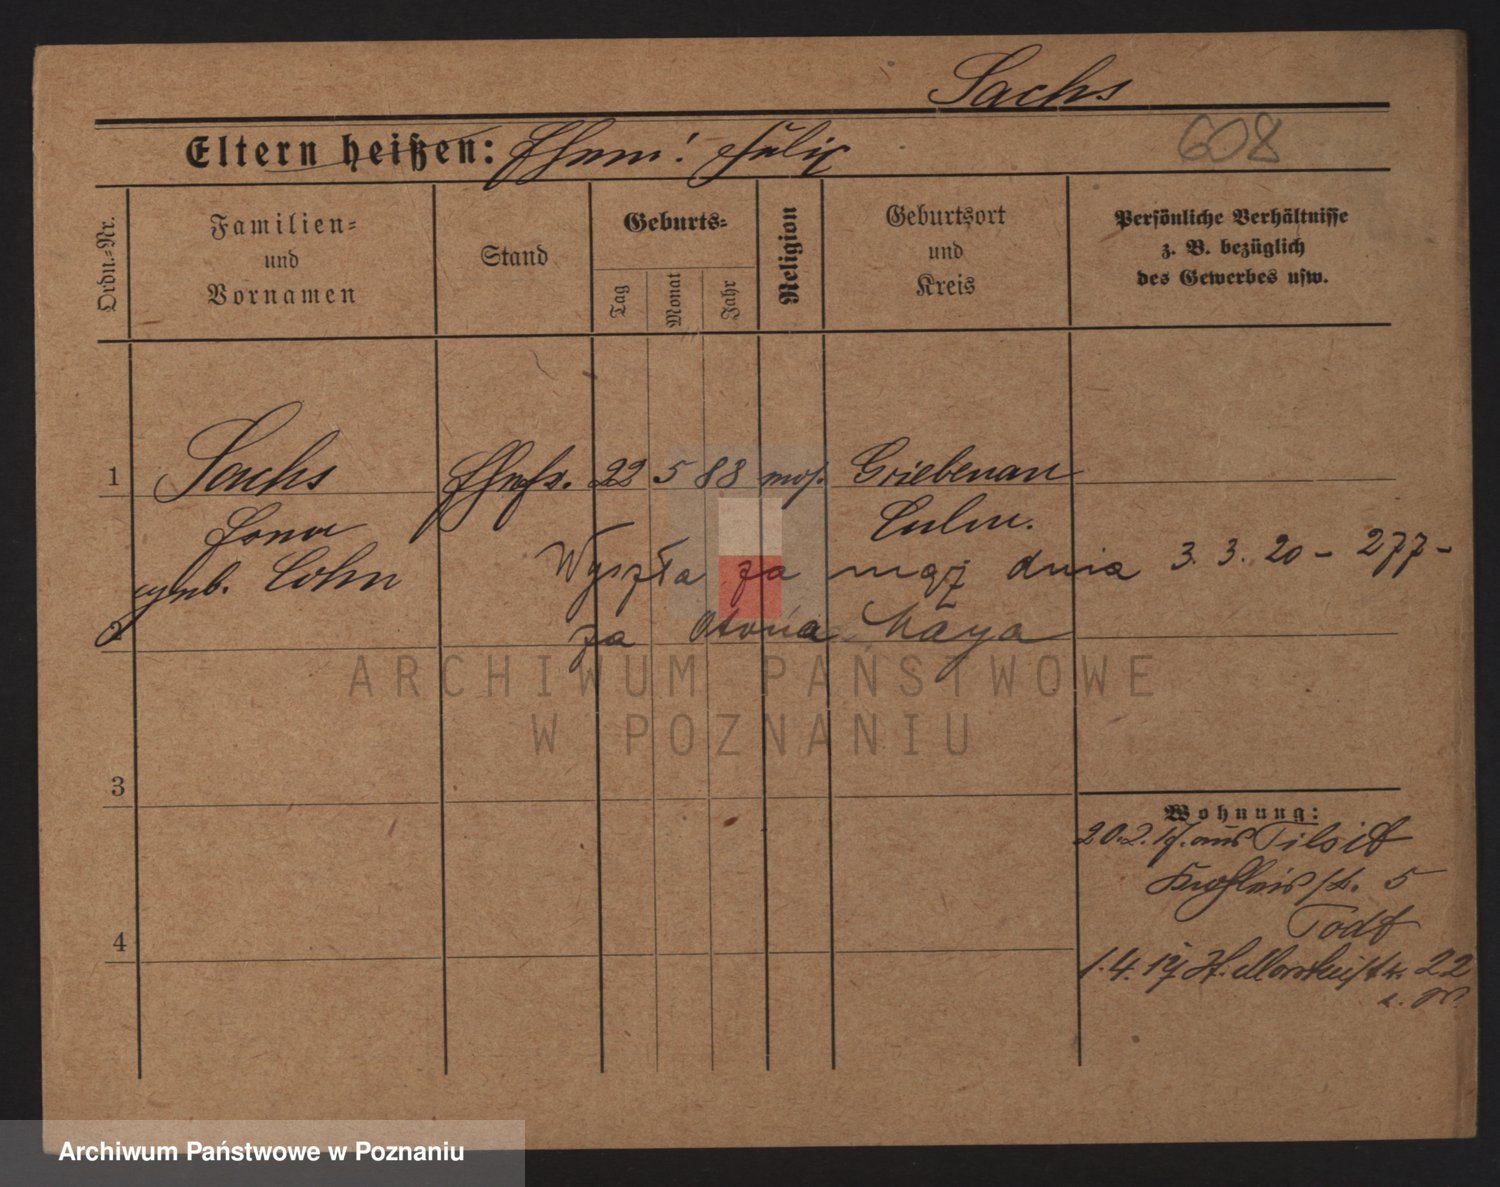 Sachs
Eltern heißen: Ehem: Julius
608
Ordn.-Nr.
Familien- und Vornamen
Stand
Geburts-
Tag
Monat
Jahr
Religion
Geburtsort und Kreis
Persönliche Verhältnisse z. B. bezüglich des Gewerbes usw.
1
Sachs Ehefr. 22 5 88 mos. Griebenau
Culm.
geb. Cohn
Wyszła za mąż dnia 3. 3. 20 - 277 -
2
za Ottona Maya
3
Wohnung:
20.2.17. aus Tilsit
5
Todt
4
1.4.17 22
ARCHIWUM PAŃSTWOWE
W POZNANIU
Archiwum Państwowe w Poznaniu